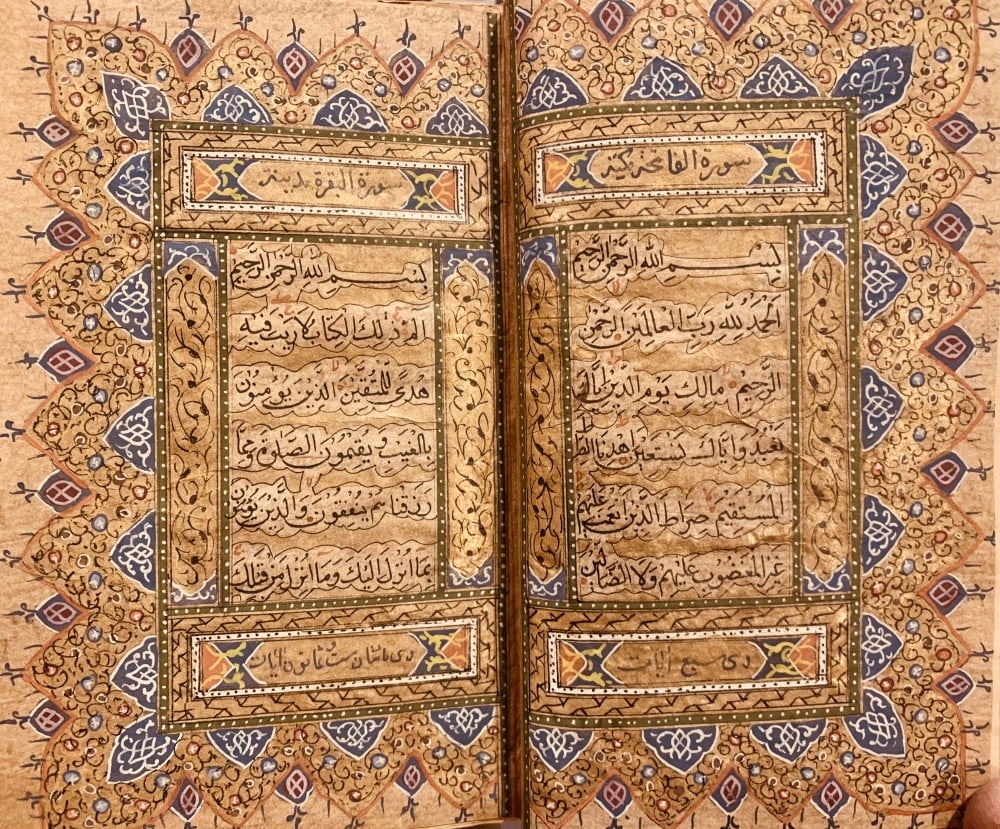 سورة الفاتحة مكية
بسم الله الرحمن الرحيم
الحمد لله رب العالمين الرحمن
الرحيم مالك يوم الدين اياك
نعبد واياك نستعين اهدنا الصراط
المستقيم صراط الذين انعمت عليهم
غير المغضوب عليهم ولا الضالين
وهي سبع ايات
سورة البقرة مدينة
بسم الله الرحمن الرحيم
الم ذلك الكتاب لا ريب فيه
هدى للمتقين الذين يومنون
بالغيب و يقيمون الصلوة ومما
رزقناهم ينفقون والذين يومنون
بما انزل اليك وما انزل من قبلك
وهي مائتان وست وثمانون ايات